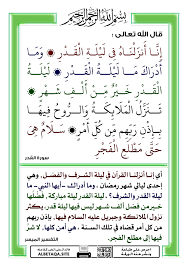 بسم الله الرحمن الرحيم
قال الله تعالى :
إِنَّا أَنزَلْنَاهُ فِي لَيْلَةِ الْقَدْرِ ۝ وَمَا
أَدْرَاكَ مَا لَيْلَةُ الْقَدْرِ ۝ لَيْلَةُ
الْقَدْرِ خَيْرٌ مِنْ أَلْفِ شَهْرٍ ۝
تَنَزَّلُ الْمَلَائِكَةُ وَالرُّوحُ فِيهَا
بِإِذْنِ رَبِّهِم مِّن كُلِّ أَمْرٍ ۝ سَلَامٌ هِيَ
حَتَّى مَطْلَعِ الْفَجْرِ
سورة القدر
إنا أنزلنا القرآن في ليلة الشرف والفضل، وهي
إحدى ليالي شهر رمضان ، وما أدراك - أيها النبي - ما
ليلة القدر والشرف؟ ، ليلة القدر ليلة مباركة، فضلها
خير من فضل ألف شهر ليس فيها ليلة قدر، يكثر
نزول الملائكة وجبريل عليه السلام فيها، بإذن ربهم
من كل أمر قضاه في تلك السنة ، هي أمن كلها، لا شر
فيها إلى مطلع الفجر.
التفسير الميسر
ALBETAQA.SITE